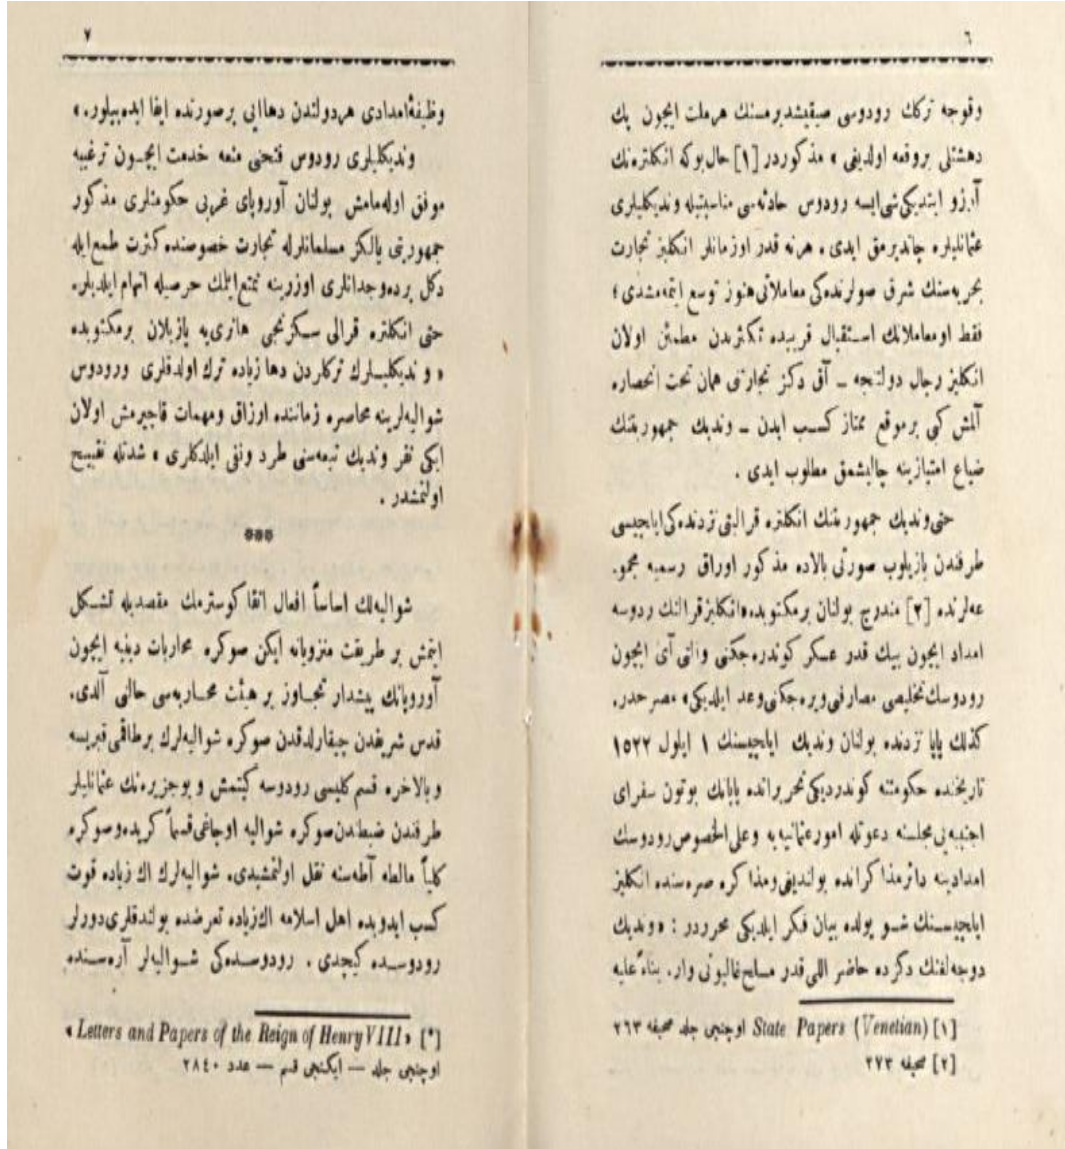 ٦
وقوجه ترکك رودوسی صیقیشدیرمسنك هرملت ایچون پك
دهشتلی بروقعه اولدیغی » مذکوردر [١] حال‌بوکه انکلتره‌نك
آرزو ایتدیکی شی‌ایسه رودوس حادثه‌سی مناسبتیله وندیکلیلری
عثمانلیلره چاتدیرمق ایدی . هرنه قدر اوزمانلر انکلیز تجارت
بحریه‌سنك شرق صولرنده‌کی معاملاتی هنوز توسع ایتمه‌مشدی ؛
فقط اومعاملاتك استقبال قریبده تکثرندن مطمئن اولان
انکلیز رجال دولتنجه ــ آق دکز تجارتنی همان تحت انحصاره
آلمش کبی برموقع ممتاز کسب ایدن ــ وندیك جمهوریتنك
ضیاع امتیازینه چالیشمق مطلوب ایدی .
حتی وندیك جمهوریتنك انکلتره قرالیتی نزدنده‌کی ایلچیسی
طرفندن یازیلوب صورتی بالاده مذکور اوراق رسمیه مجمو-
عه‌لرنده [٢] مندرج بولنان برمکتوبده «انکلیز قرالنك ردوسه
امداد ایچون بیك قدر عسکر کوندره‌جکنی والتی آی ایچون
رودوسك تخلیصی مصارفنی ویره‌جکنی وعد ایلدیکی» مصرحدر.
کذلك پاپا نزدنده بولنان وندیك ایلچیسنك ١ ایلول ١٥٢٢
تاریخنده حکومتنه کوندردیکی تحریراتده پاپانك بوتون سفرای
اجنبیه‌یی مجلسنه دعوتله امور عثمانیه‌یه وعلی الخصوص رودوسك
امدادینه دائر مذاکراتده بولندیغی ومذاکره صره‌سنده انکلیز
ایلچیسنك شو یولده بیان فکر ایلدیکی محرردر : «وندیك
دوجه‌لغنك دکزده حاضر اللی قدر مسلح غالیوتی وار. بناءً علیه
[١] State Papers (Venetian) اوچنجی جلد صحیفه ٢٦٣
[٢] صحیفه ٢٧٣
٧
وظیفهٔ امدادی هردولتدن دهاایی برصورتده ایفا ایده‌بیلور. »
وندیکلیلری رودوس فتحنی منعه خدمت ایچون ترغیبه
موفق اوله‌مامش بولنان آوروپای غربی حکومتلری مذکور
جمهوریتی یالکز مسلمانلرله تجارت خصوصنده کثرت طمع ایله
دکل برده وجدانلری اوزرینه تمتع ایتمك حرصیله اتهام ایلدیلر.
حتی انکلتره قرالی سکزنجی هانری‌یه یازیلان برمکتوبده
« وندیکلیلرك ترکلردن دها زیاده ترك اولدقلری ورودوس
شوالیه‌لرینه محاصره زماننده اوزاق ومهمات قاچیرمش اولان
ایکی نفر وندیك تبعه‌سنی طرد ونفی ایلدکلری » شدتله تقبیح
اولنمشدر .
***
شوالیه‌لك اساساً افعال اتقا کوسترمك مقصدیله تشکل
ایتمش بر طریقت منزویانه ایکن صوکره محاربات دینیه ایچون
آوروپانك پیشدار تجاوز بر هیئت محاربه‌سی حالنی آلدی.
قدس شریفدن چیقارلدقدن صوکره شوالیه‌لرك برطاقمی قبریسه
وبالاخره قسم کلیسی رودوسه کیتمش و بوجزیره‌نك عثمانلیلر
طرفندن ضبطندن صوکره شوالیه اوجاغی قسماً کریده وصوکره
کلیاً مالطه آطه‌سنه نقل اولنمشیدی. شوالیه‌لرك اك زیاده قوت
کسب ایدوبده اهل اسلامه اك زیاده تعرضده بولندقلری دورلر
رودوسده کچدی . رودوسده‌کی شوالیه‌لر آره‌سنده
[*] «Letters and Papers of the Reign of Henry VIII»
اوچنجی جلد — ایکنجی قسم — عدد ٢٨٤٠